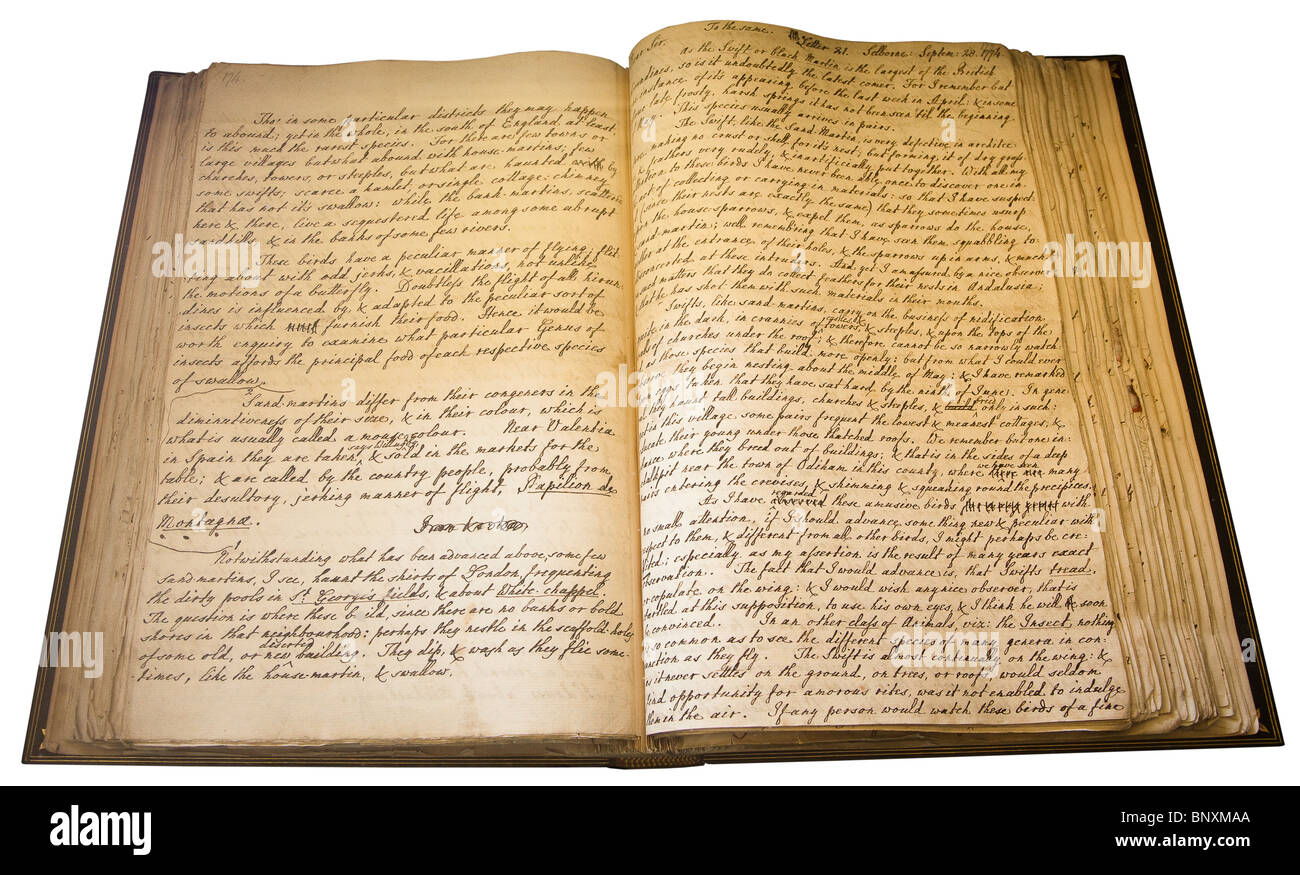 174
That in some particular districts they may happen
to abound; yet in the whole, in the south of England, at least,
is this much the rarest species. For there are few towns or
large villages but what abound with house-martins; few
churches, towers, or steeples, but what are haunted by
some swifts; scarce a hamlet, or single cottage-chimney
that has not it's swallow: while the bank-martins, scattered
here & there, live a sequestered life among some abrupt
sand-hills, & in the banks of some few rivers.
These birds have a peculiar manner of flying; flit-
ting about with odd jerks, & vacillations, not unlike
the motions of a butterfly. Doubtless the flight of all hirun-
dines is influenced by, & adapted to the peculiar sort of
insects which furnish their food. Hence it would be
worth enquiry to examine what particular Genus of
insects affords the principal food of each respective species
of swallow.
Sand-martins differ from their congeners in the
diminutiveness of their size, & in their colour, which is
what is usually called a mouse-colour. Near Valentia
in Spain they are taken, says Willughby, & sold in the markets for the
table; & are called by the country people, probably from
their desultory, jerking manner of flight, Papilion de
Montagna.
Notwithstanding what has been advanced above, some few
sand-martins, I see, haunt the skirts of London, frequenting
the dirty pools in St. George's fields, & about White-chappel.
The question is where these build, since there are no banks or bold
shores in that neighbourhood: perhaps they nestle in the scaffold-holes
of some old, or new deserted building. They dip, & wash as they flie some-
-times, like the house-martin, & swallow.
To the same.
Letter 21. Selborne: Septem: 28. 1774.
Dear Sir.
As the Swift or black Martin is the largest of the British
hirundines, so is it undoubtedly the latest comer. For I remember but
instance of it's appearing before the last week in April: & in some
late, frosty, harsh springs it has not been seen 'til the beginning
This species usually arrives in pairs.
The Swift, like the Sand-Martin, is very defective in architec-
making no crust, or shell, for it's nest; but forming it of dry grass
& feathers very rudely, & inartificially put together. With all my
to these birds I have never been able once to discover one in
of collecting or carrying in materials: so that I have suspect:
(since their nests are exactly the same) that they sometimes usurp
the house-sparrows, & expel them, as sparrows do the house,
sand-martin; well remembring that I have seen them squabbling to-
at the entrance of their holes, & the sparrows up in arms, & much
disconcerted at these intruders. And yet I am assured by a nice observer
matters that they do collect feathers for their nests in Andalusia:
that he has shot them with such materials in their mouths.
Swifts, like sand-martins, carry on the business of nidification
quite in the dark, in crannies of castles, towers, & steeples, & upon the tops of the
of churches under the roof; & therefore cannot be so narrowly watch-
those species that build more openly: but from what I could ever
they begin nesting about the middle of May; & I have remarked
from eggs taken that they have sat hard by the ninth of June. In gene-
they haunt tall buildings, churches & steeples, & only in such:
in this village some pairs frequent the lowest & meanest cottages, &
educate their young under those thatched roofs. We remember but one in-
where they breed out of buildings; & that is in the sides of a deep
chalkpit near the town of Odiham in this county, where we have seen many
pairs entering the crevises, & skimming & squeaking round the precipices.
As I have regarded these amusive birds with
no small attention, if I should advance something new & peculiar with
respect to them, & different from all other birds, I might perhaps be cre-
dited; especially as my assertion is the result of many years exact
observation. The fact that I would advance is, that Swifts tread,
or copulate on the wing: & I would wish any nice observer, that is
startled at this supposition, to use his own eyes, & I think he will soon
be convinced. In an other class of Animals, viz: the Insect, nothing
so common as to see the different species of many genera in con-
junction as they fly. The Swift is almost continually on the wing: &
as it never settles on the ground, on trees, or roofs, would seldom
find opportunity for amorous rites, was it not enabled to indulge
them in the air. If any person would watch these birds of a fine
alamy
Image ID: BNXMAA
www.alamy.com